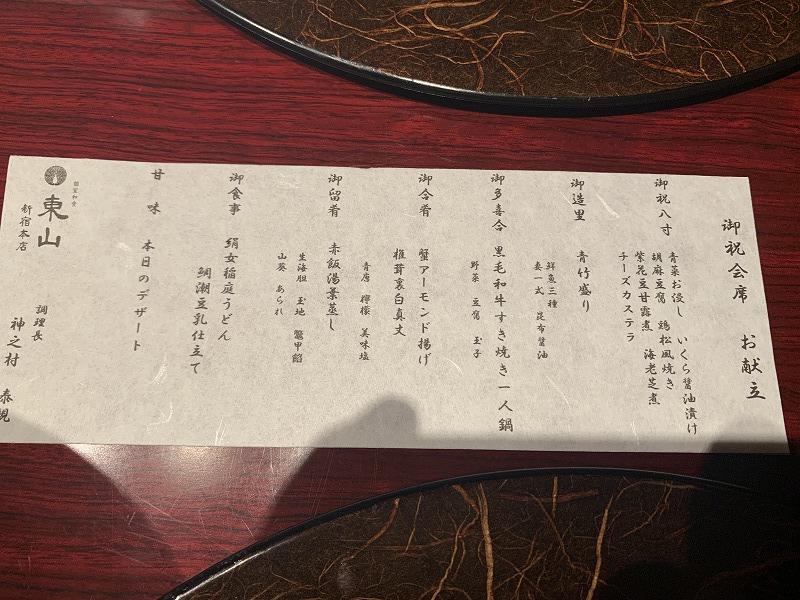 御祝会席　お献立
御祝八寸
青菜お浸し　いくら醤油漬け
胡麻豆腐　鶏松風焼き
紫花豆甘露煮　海老芝煮
チーズカステラ
御造里　青竹盛り
鮮魚三種
妻一式　昆布醤油
御多喜合　黒毛和牛すき焼き一人鍋
野菜　豆腐　玉子
御合肴　蟹アーモンド揚げ
椎茸裏白真丈
青唐　檸檬　美味塩
御留肴　赤飯湯葉蒸し
生海胆　玉地　鼈甲餡
山葵　あられ
御食事　絹女稲庭うどん
鯛潮豆乳仕立て
甘味　本日のデザート
個室和食
東山
新宿本店
調理長
神之村　泰